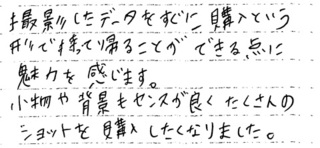 撮影したデータをすぐに購入という
形で持って帰ることができる点に
魅力を感じます。
小物や背景もセンスが良くたくさんの
ショットを購入したくなりました。